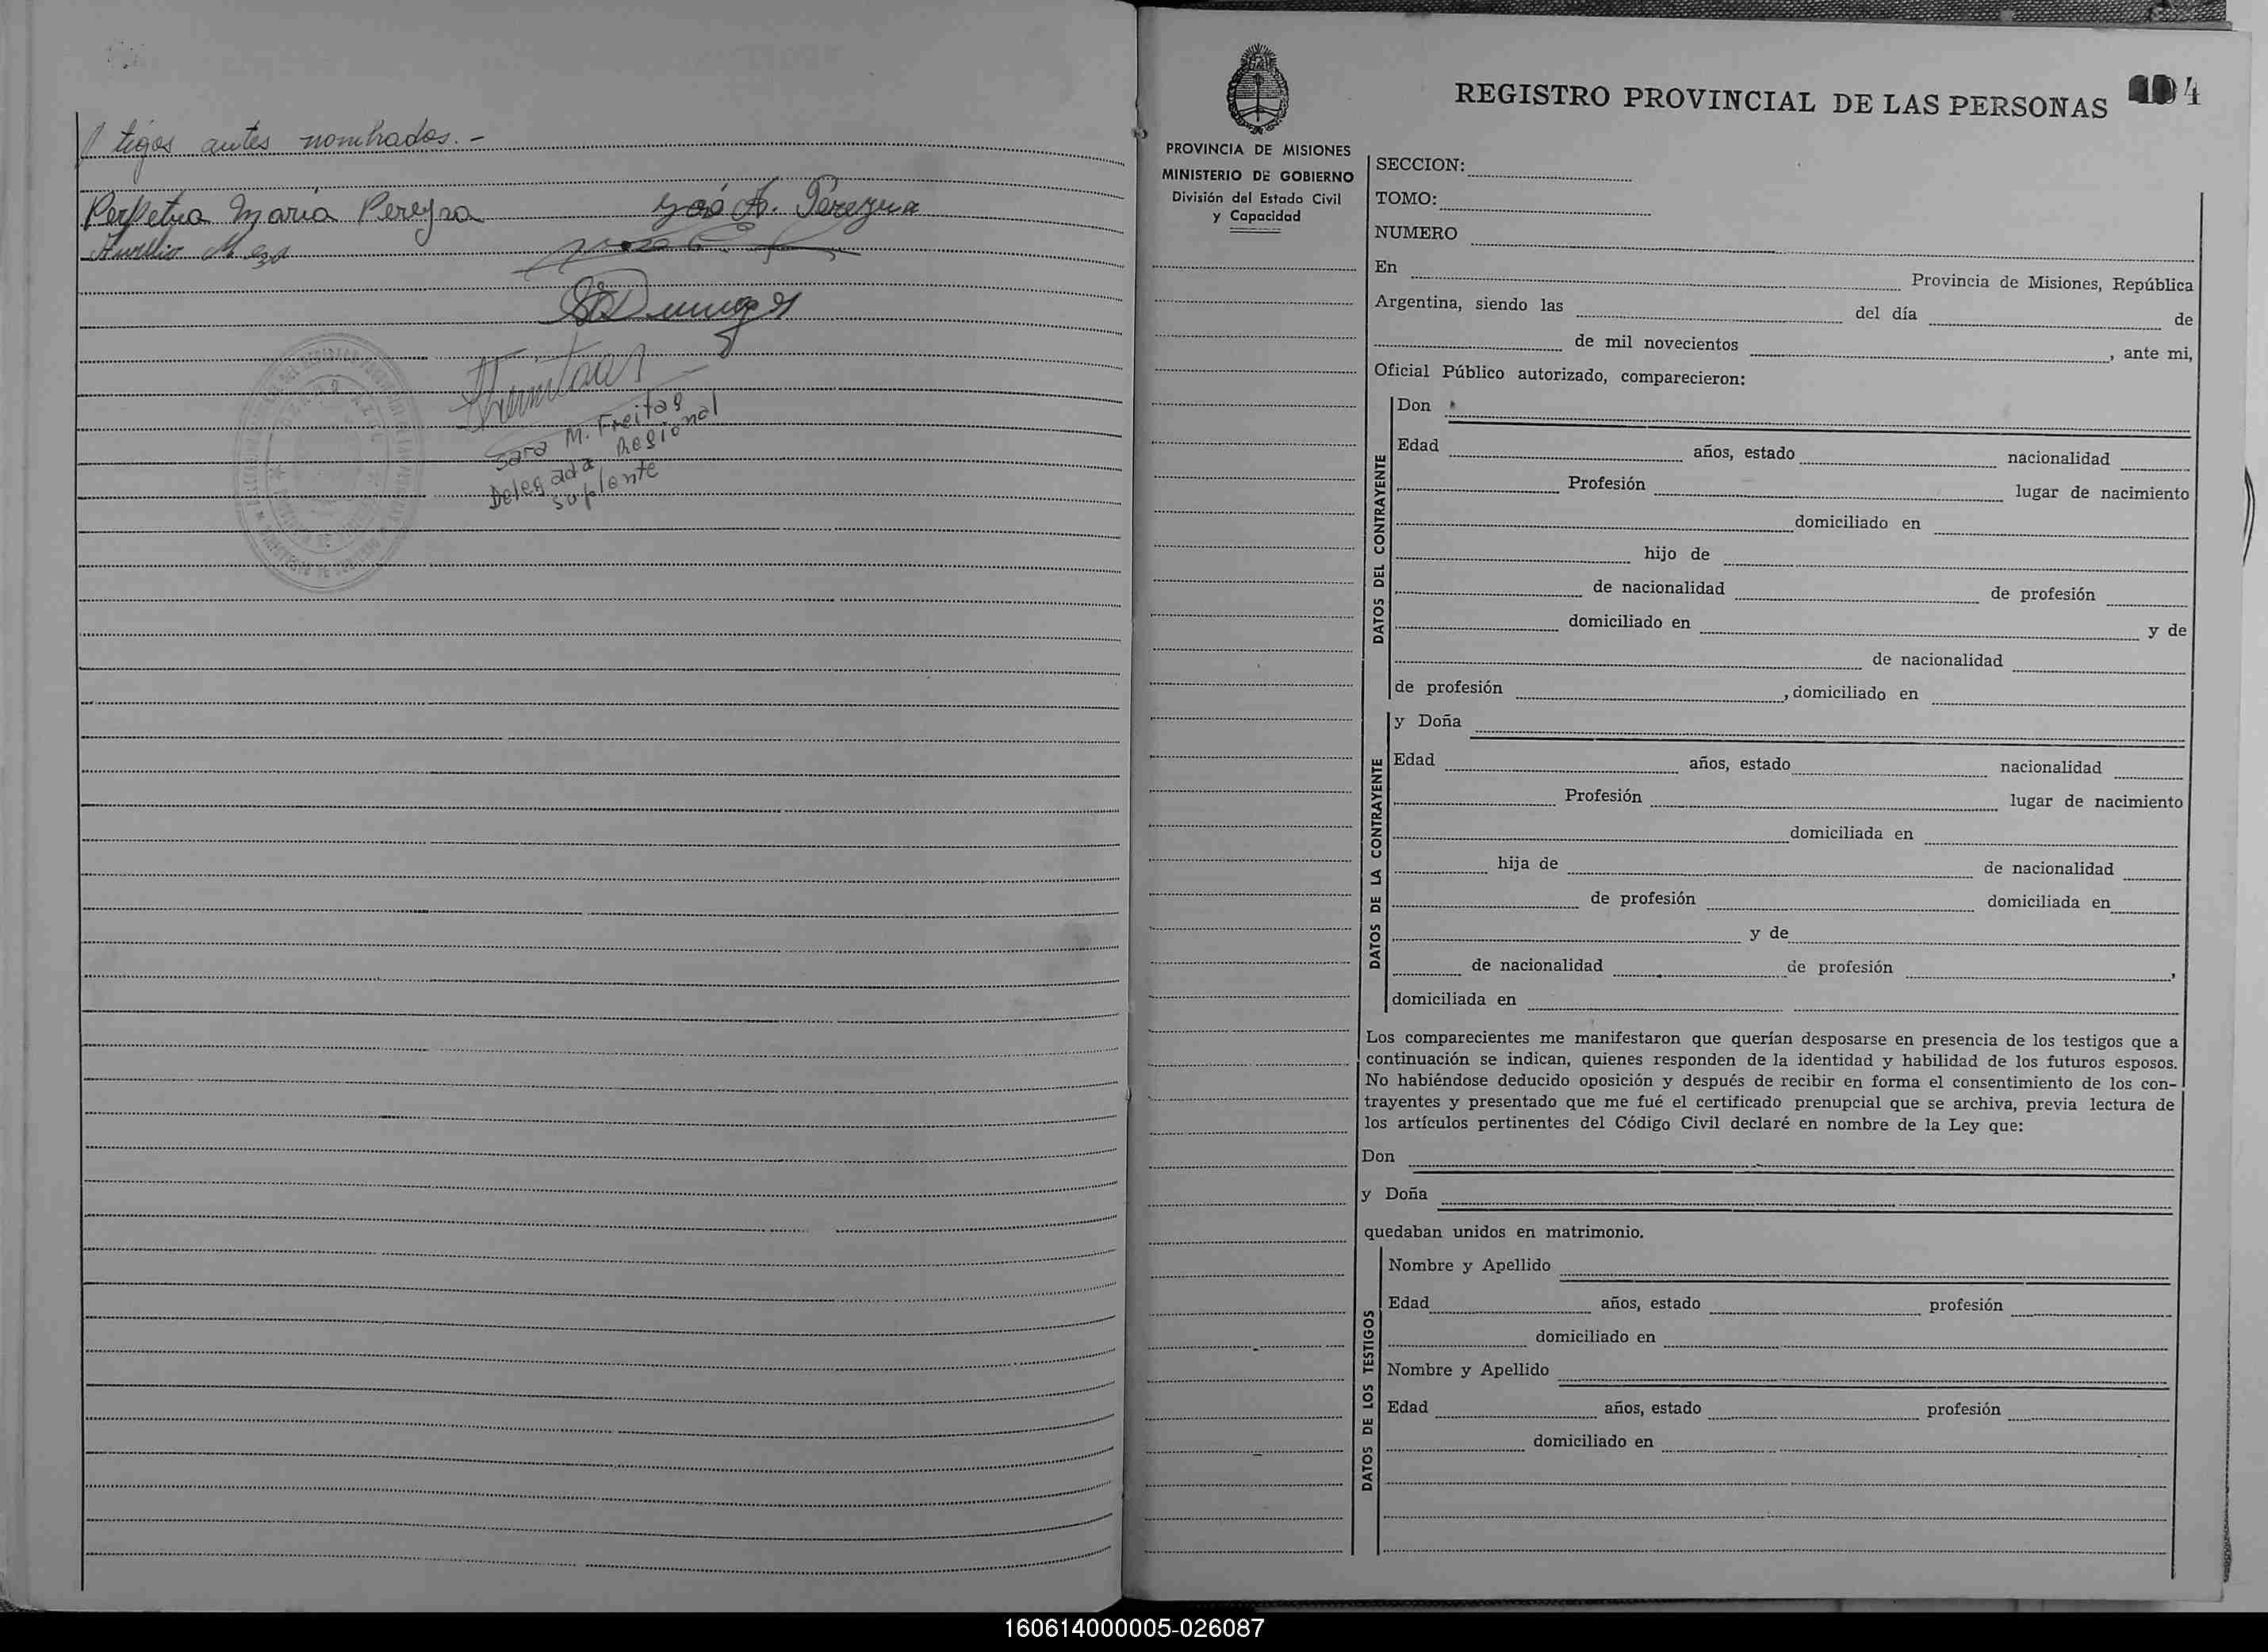 tigos antes nombrados.-
Perpetua Maria Pereyra
José A. Pereyra
Aurelio Meza
Sara M. Freitas
Delegada Regional
suplente
REGISTRO PROVINCIAL DE LAS PERSONAS
4
PROVINCIA DE MISIONES
MINISTERIO DE GOBIERNO
División del Estado Civil
y Capacidad
SECCION:
TOMO:
NUMERO
En Provincia de Misiones, República
Argentina, siendo las del día de
de mil novecientos , ante mi,
Oficial Público autorizado, comparecieron:
DATOS DEL CONTRAYENTE
Don
Edad años, estado nacionalidad
Profesión lugar de nacimiento
domiciliado en
hijo de
de nacionalidad de profesión
domiciliado en y de
de nacionalidad
de profesión , domiciliado en
DATOS DE LA CONTRAYENTE
y Doña
Edad años, estado nacionalidad
Profesión lugar de nacimiento
domiciliada en
hija de de nacionalidad
de profesión domiciliada en
y de
de nacionalidad de profesión ,
domiciliada en
Los comparecientes me manifestaron que querían desposarse en presencia de los testigos que a
continuación se indican, quienes responden de la identidad y habilidad de los futuros esposos.
No habiéndose deducido oposición y después de recibir en forma el consentimiento de los con-
trayentes y presentado que me fué el certificado prenupcial que se archiva, previa lectura de
los artículos pertinentes del Código Civil declaré en nombre de la Ley que:
Don
y Doña
quedaban unidos en matrimonio.
DATOS DE LOS TESTIGOS
Nombre y Apellido
Edad años, estado profesión
domiciliado en
Nombre y Apellido
Edad años, estado profesión
domiciliado en
160614000005-026087